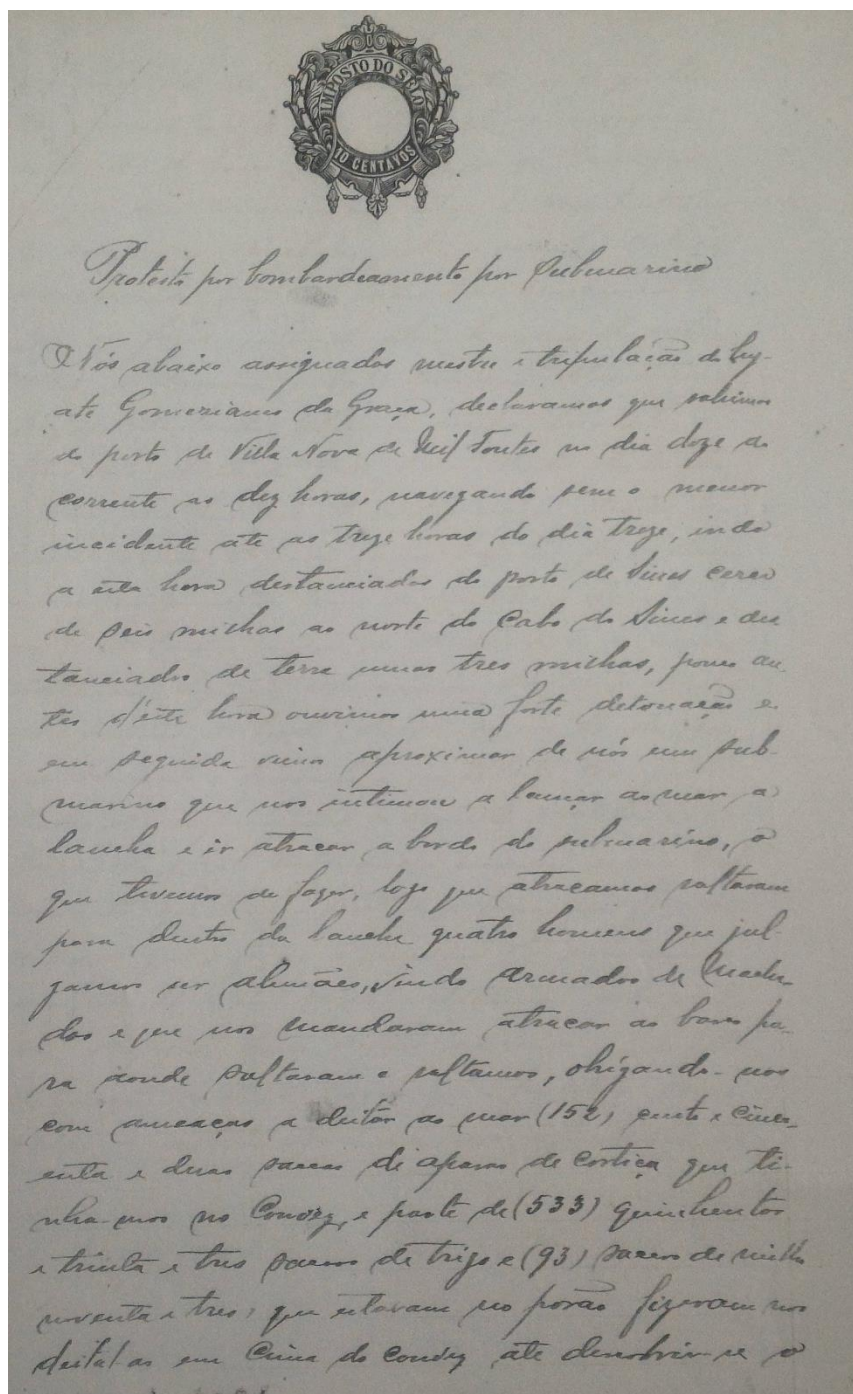 IMPOSTO DO SELO
10 CENTAVOS
Protesto por bombardeamento por submarino
Nós abaixo assignados mestre e tripulação do hy-
ate Gomeziamo da Graça, declaramos que sahimos
do porto de Villa Nova de Mil Fontes no dia doze do
corrente as dez horas, navegando sem o menor
incidente ate as treze horas do dia treze, indo
a esta hora destanciados do porto de Sines cerca
de seis milhas ao norte do Cabo de Sines e des
tanciados de terra umas tres milhas, pouco an-
tes d'esta hora ouvimos uma forte detonação e
em seguida vimos aproximar de nós um sub-
marino que nos intimou a lançar ao mar a
lancha e ir atracar a bordo do submarino, o
que tivemos de fazer, logo que atracamos saltaram
para dentro da lancha quatro homens que jul-
gamos ser alemães, vindo armados de macha-
dos e que nos mandaram atracar ao barco pa-
ra aonde saltaram e saltamos, obrigando-nos
com ameaças a deitar ao mar (152) cento e cinco-
enta e duas sacas de aparas de cortiça que ti-
nha-mos no Convez, e parte de (533) quinhentos
e trinta e tres sacos de trigo e (93) sacos de milho
noventa e tres, que estavam no porão fizeram nos
deital-as em cima do convez ate descobrir-se o